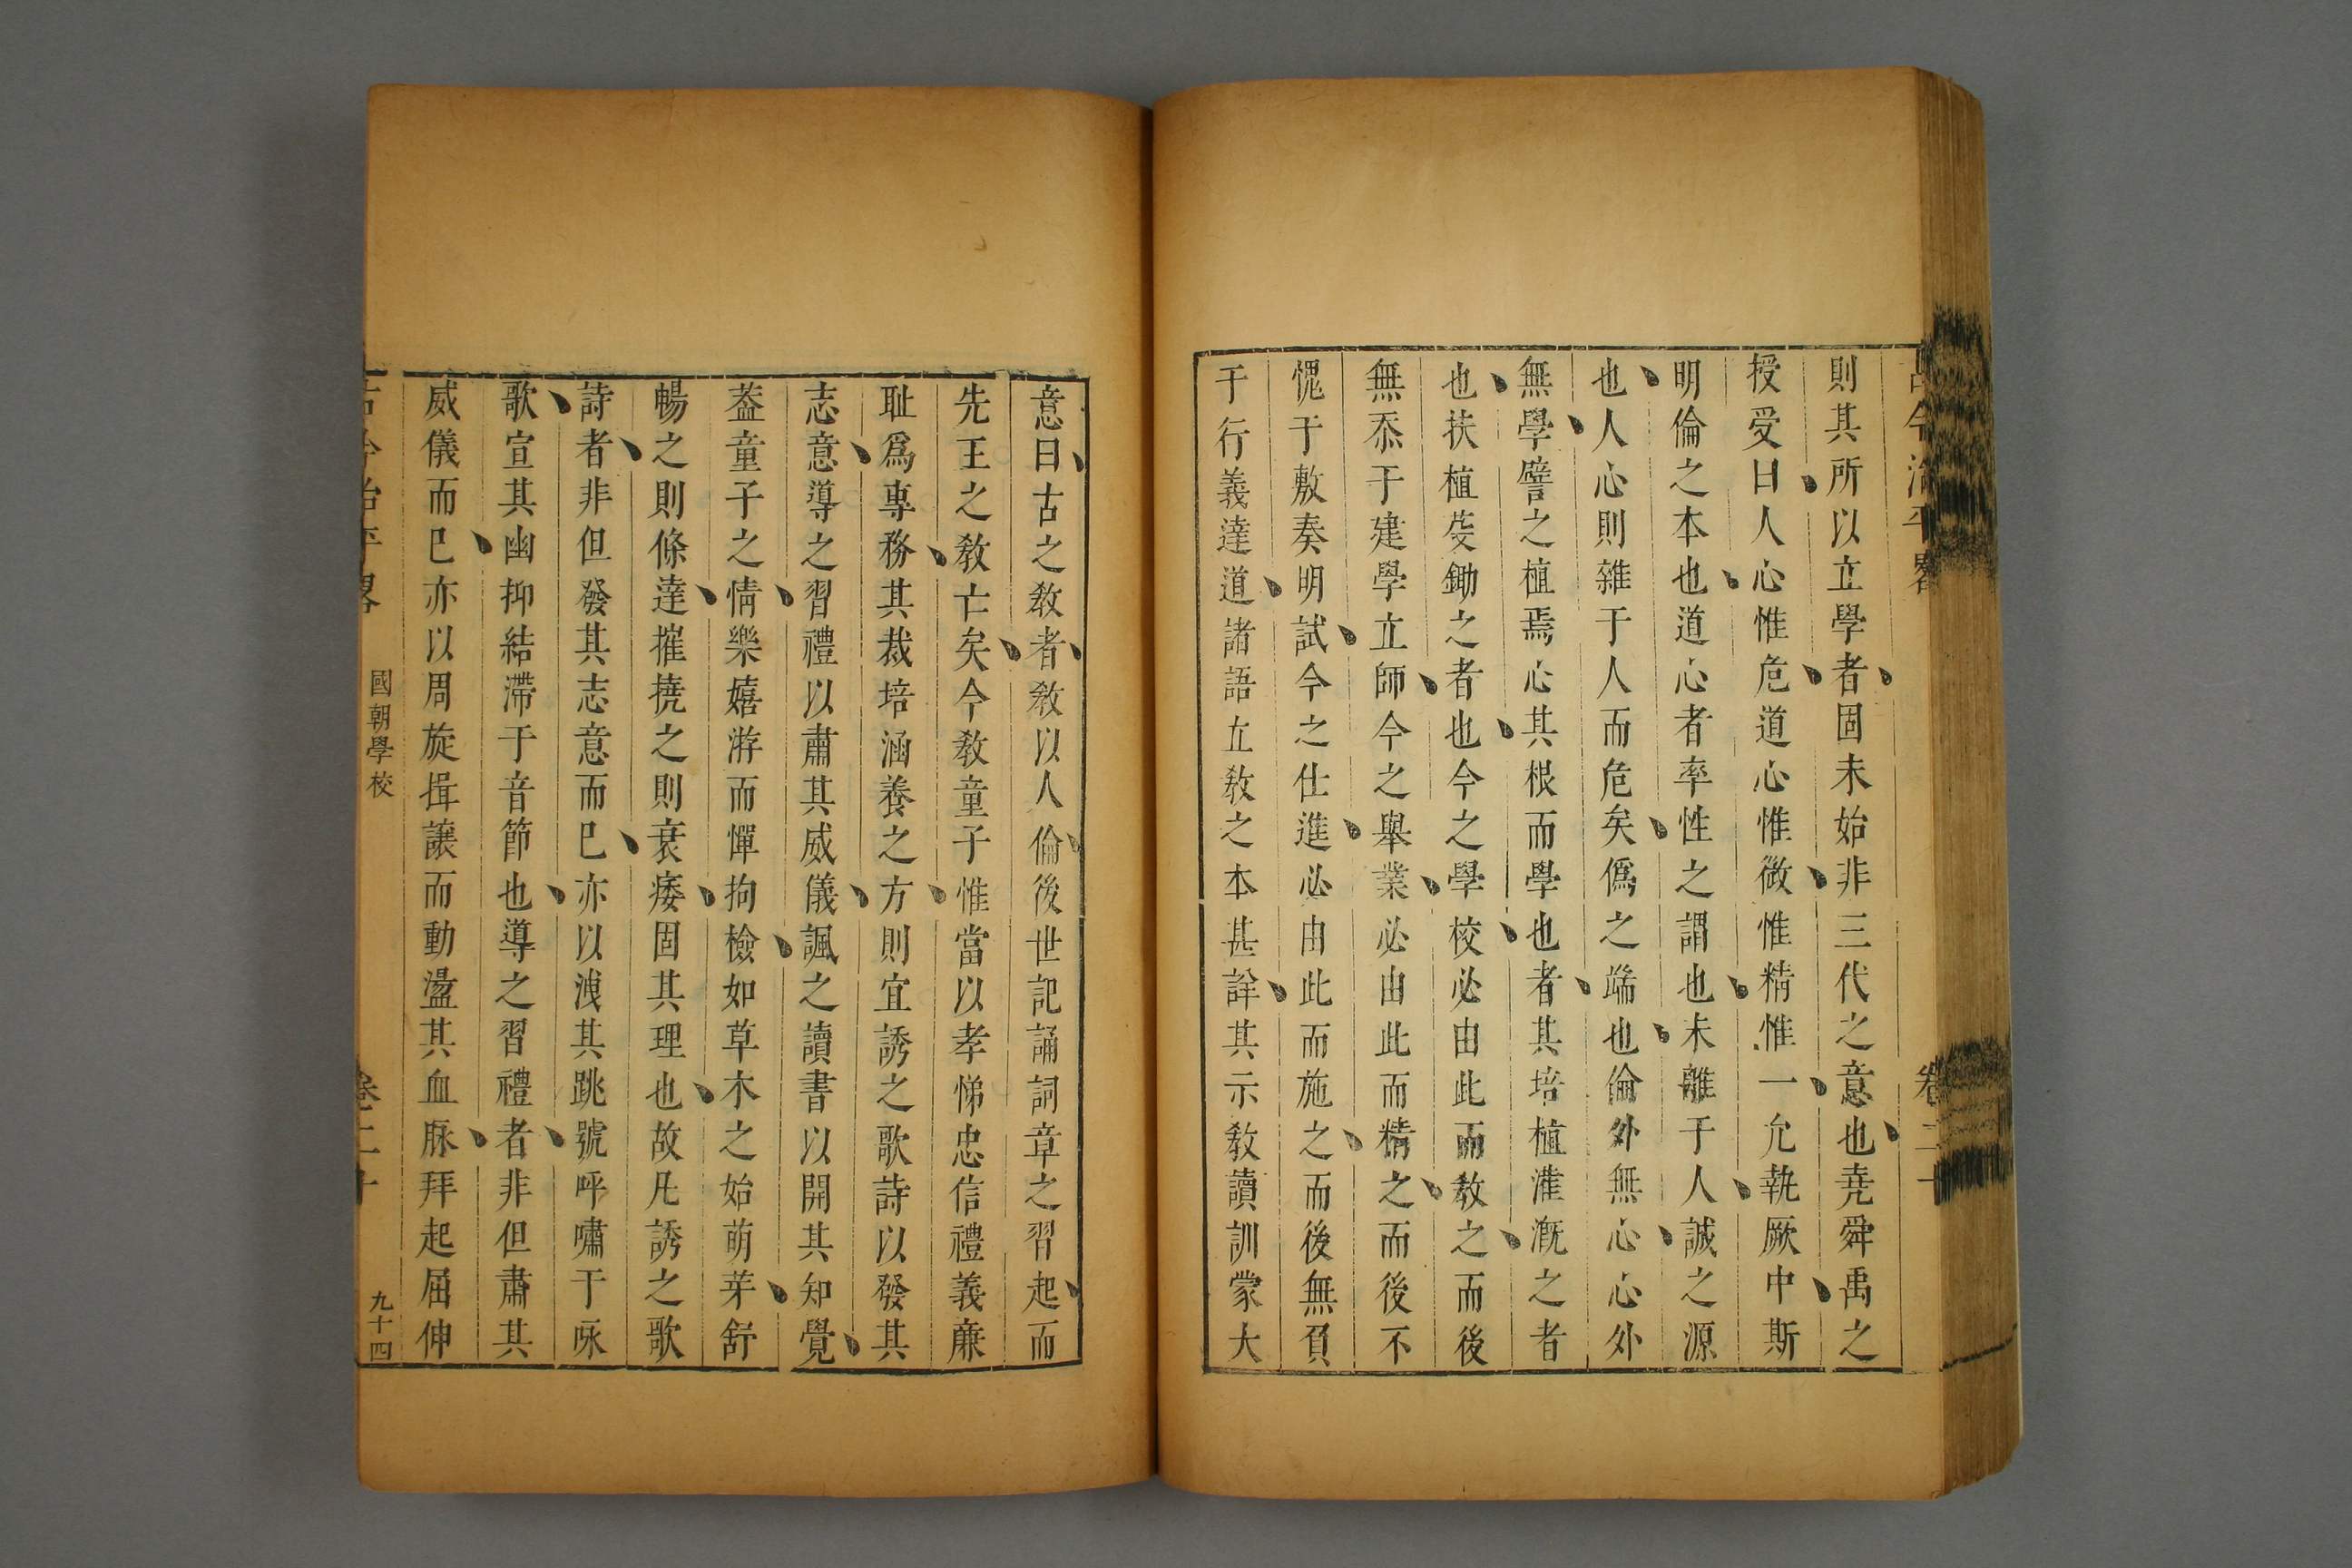 古今治平畧 卷二十
則其所以立學者固未始非三代之意也尭舜禹之
授受曰人心惟危道心惟微惟精惟一允執厥中斯
明倫之本也道心者率性之謂也未離于人誠之源
也人心則雜于人而危矣僞之端也倫外無心心外
無學譬之植焉心其根而學也者其培植灌漑之者
也扶植芟鋤之者也今之學校必由此而敎之而後
無忝于建學立師今之舉業必由此而精之而後不
愧于敷奏明試今之仕進必由此而施之而後無負
于行義達道諸語立敎之本甚詳其示敎讀訓蒙大
意曰古之敎者敎以人倫後世記誦詞章之習起而
先王之敎亡矣今敎童子惟當以孝悌忠信禮義廉
耻爲專務其裁培涵養之方則宜誘之歌詩以發其
志意導之習禮以肅其威儀諷之讀書以開其知覺
葢童子之情樂嬉游而憚拘檢如草木之始萌芽舒
暢之則條達摧撓之則衰痿固其理也故凡誘之歌
詩者非但發其志意而已亦以洩其跳號呼嘯于咏
歌宣其幽抑結滯于音節也導之習禮者非但肅其
威儀而已亦以周旋揖讓而動盪其血脉拜起屈伸
古今治平畧 國朝學校 卷二十 九十四